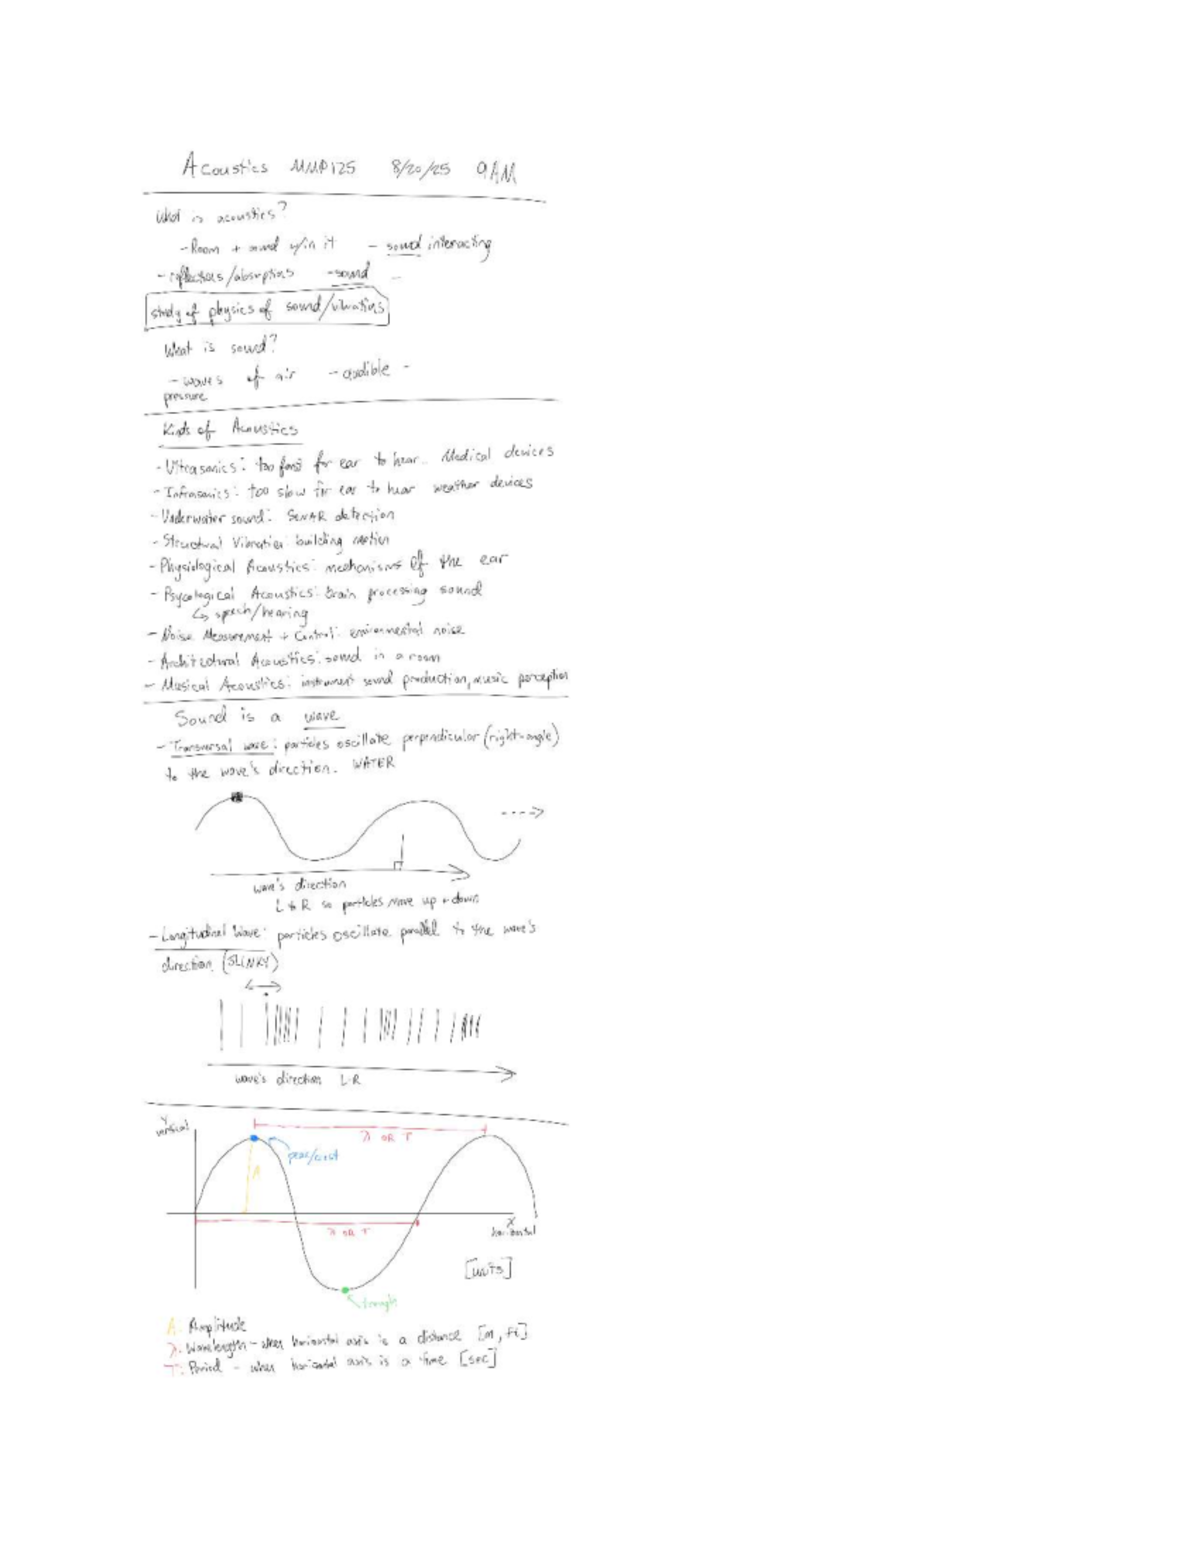 Acoustics MMP125 8/20/25 9AM
What is acoustics?
- Room + sound w/in it - sound interacting
- reflections/absorptions - sound -
study of physics of sound/vibrations
What is sound?
- waves of air - audible -
pressure
Kinds of Acoustics
- Ultrasonics: too fast for ear to hear. Medical devices
- Infrasonics: too slow for ear to hear weather devices
- Underwater sound: SONAR detection
- Structural Vibration: building motion
- Physiological Acoustics: mechanisms of the ear
- Psycological Acoustics: brain processing sound
↳ speech/hearing
- Noise Measurement + Control: environmental noise
- Architectural Acoustics: sound in a room
- Musical Acoustics: instrument sound production, music perception
Sound is a wave
- Transversal wave: particles oscillate perpendicular (right-angle)
to the wave's direction. WATER
wave's direction
L → R so particles move up + down
- Longitudinal Wave: particles oscillate parallel to the wave's
direction (SLINKY)
wave's direction L-R
Y
vertical
λ OR T
peak/crest
A
λ OR T
X
horizontal
[units]
trough
A: Amplitude
λ: Wavelength - when horizontal axis is a distance [m, ft]
T: Period - when horizontal axis is a time [sec]